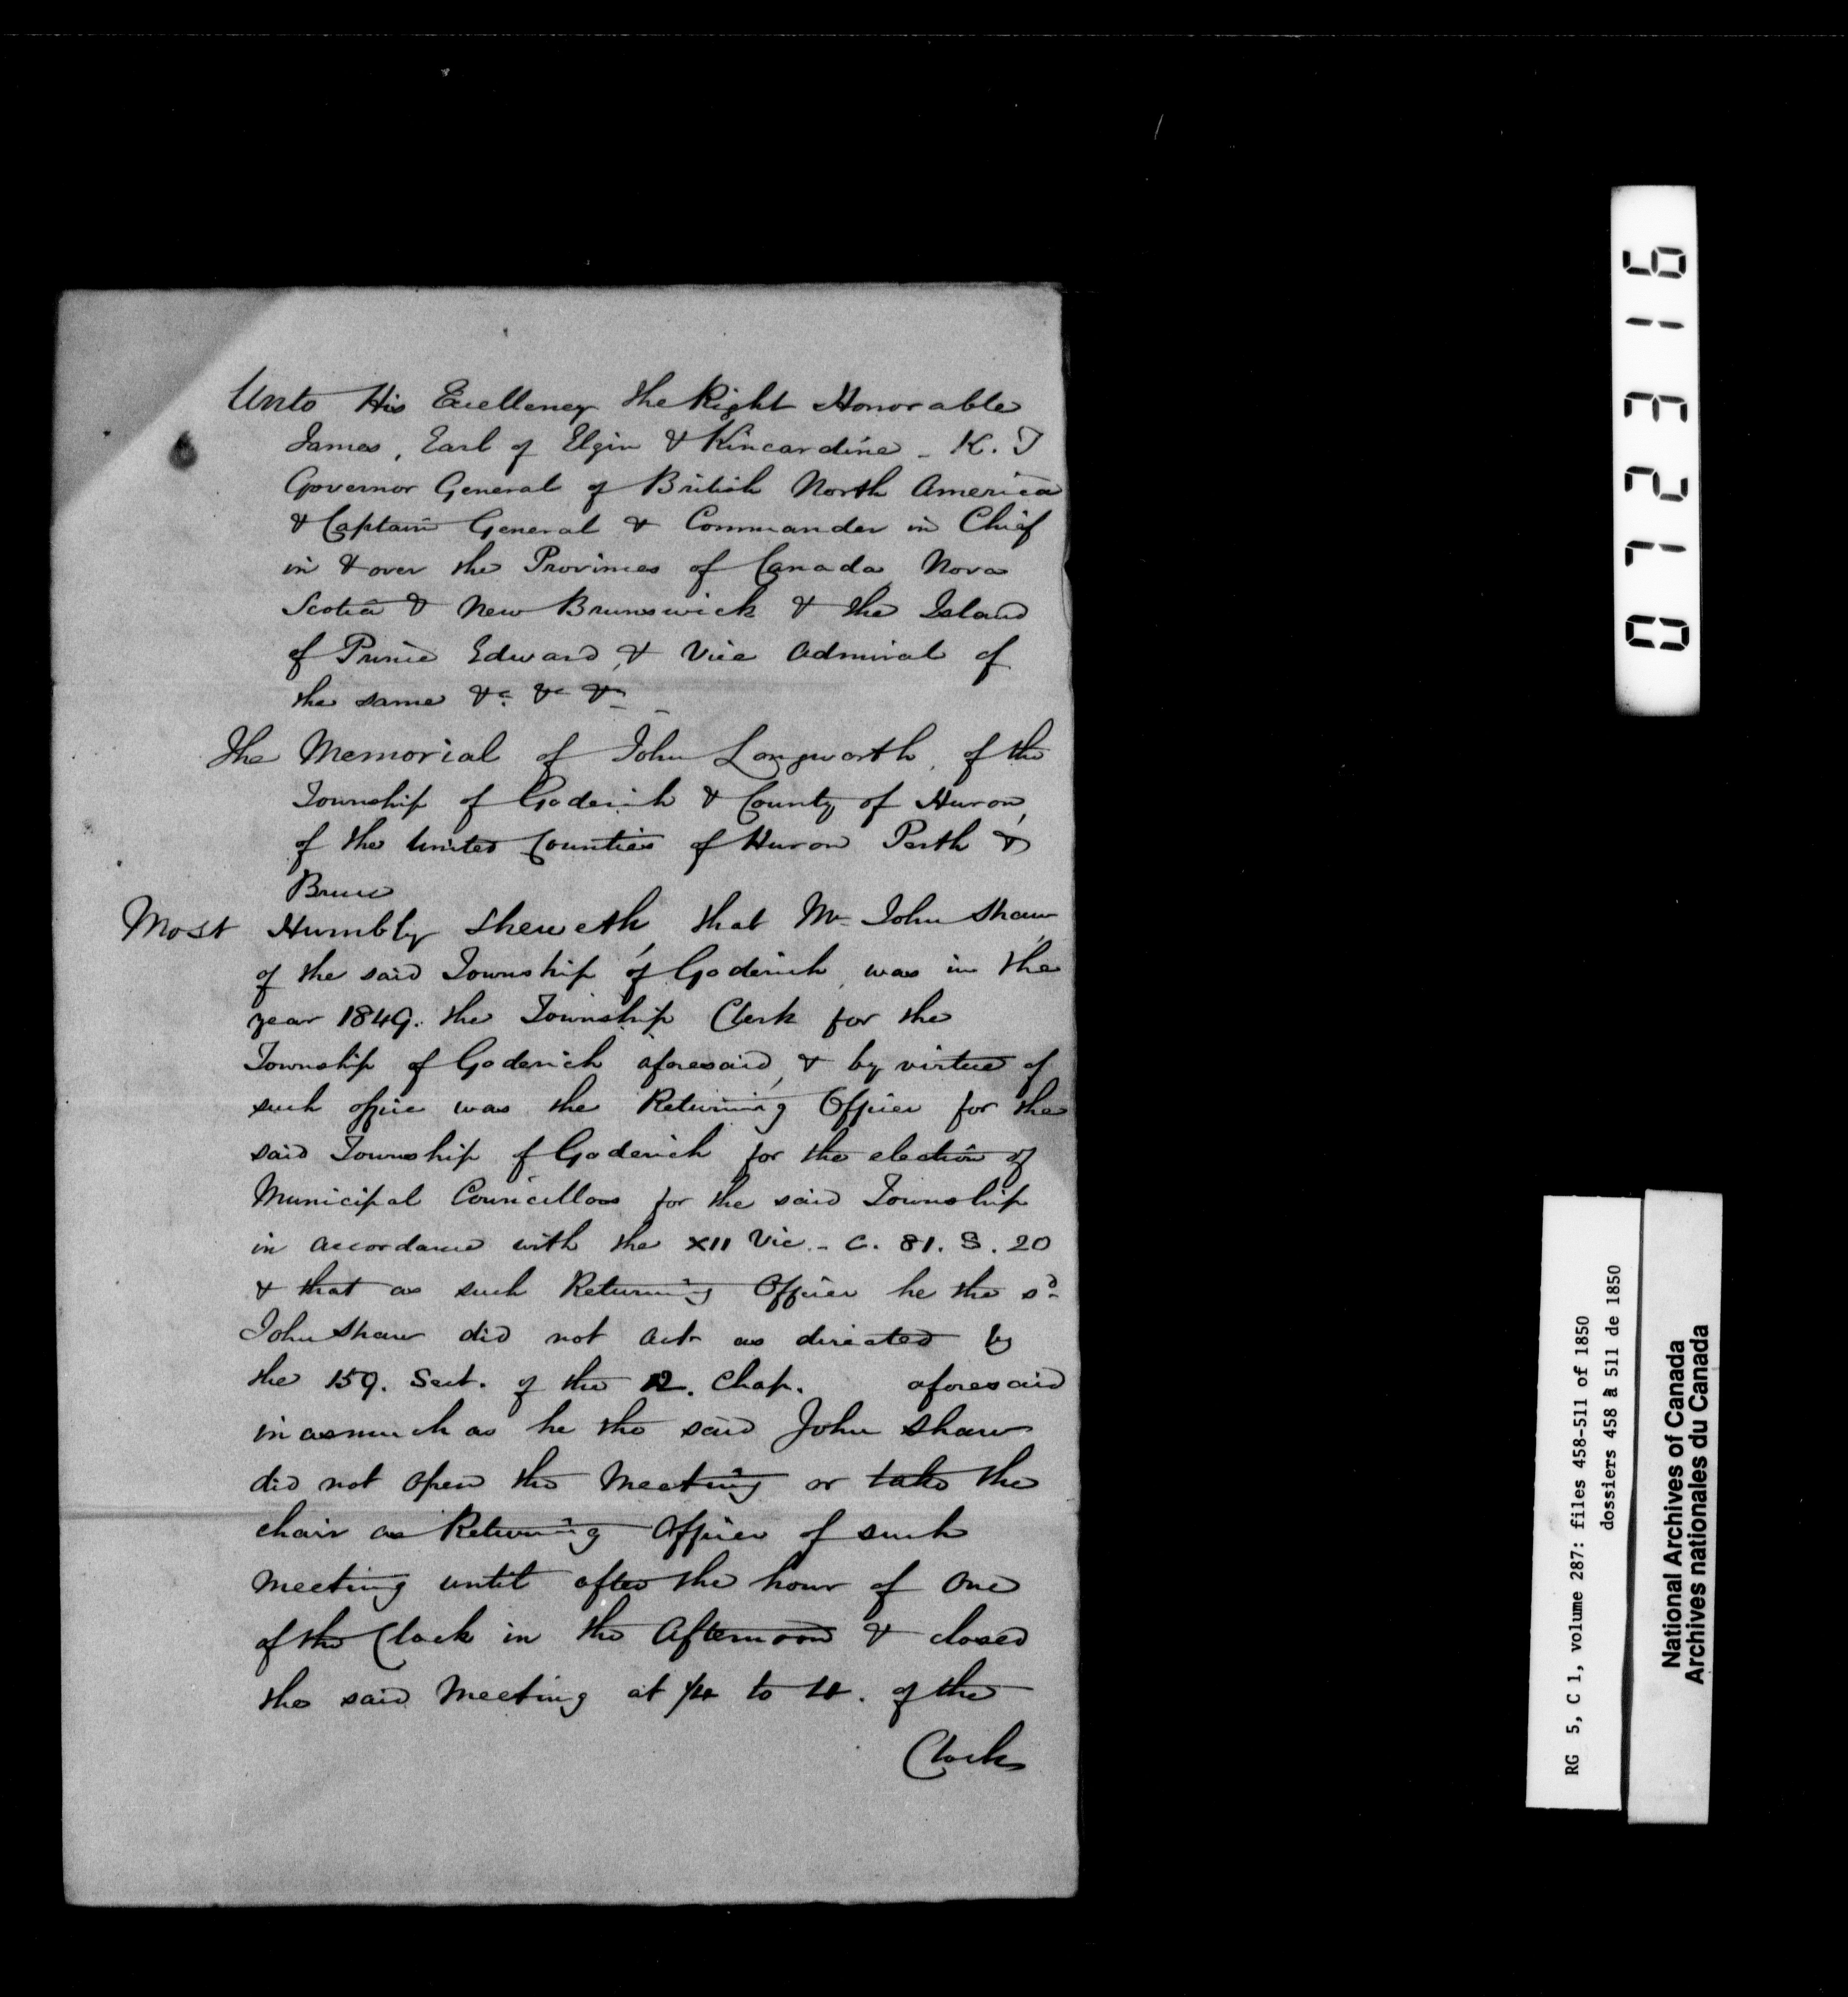 Unto His Excellency The Right Honorable
James, Earl of Elgin & Kincardine - K. T
Governor General of British North America
& Captain General & Commander in Chief
in & over the Provinces of Canada, Nova
Scotia & New Brunswick & the Island
of Prince Edward, & Vice Admiral of
the same &c &c &c
The Memorial of John Longworth, of the
Township of Goderich & County of Huron,
of the United Counties of Huron Perth &
Bruce
Most Humbly Sheweth, that Mr John Shaw,
of the said Township of Goderich, was in the
year 1849. the Township Clerk for the
Township of Goderich aforesaid, & by virtue of
such office was the Returning Officer for the
said Township of Goderich for the election of
Municipal Councillors for the said Township
in accordance with the XII Vic. - C. 81. S. 20
& that as such Returning Officer he the sd
John Shaw did not act as directed by
the 159. Sect. of the 12. Chap. aforesaid
in asmuch as he the said John Shaw
did not open the Meeting or take the
chair as Returning Officer of such
meeting until after the hour of One
of the Clock in the Afternoon & closed
the said Meeting at 1/4 to 4. of the
Clock
072316
RG 5, C 1, volume 287: files 458-511 of 1850
dossiers 458 à 511 de 1850
National Archives of Canada
Archives nationales du Canada